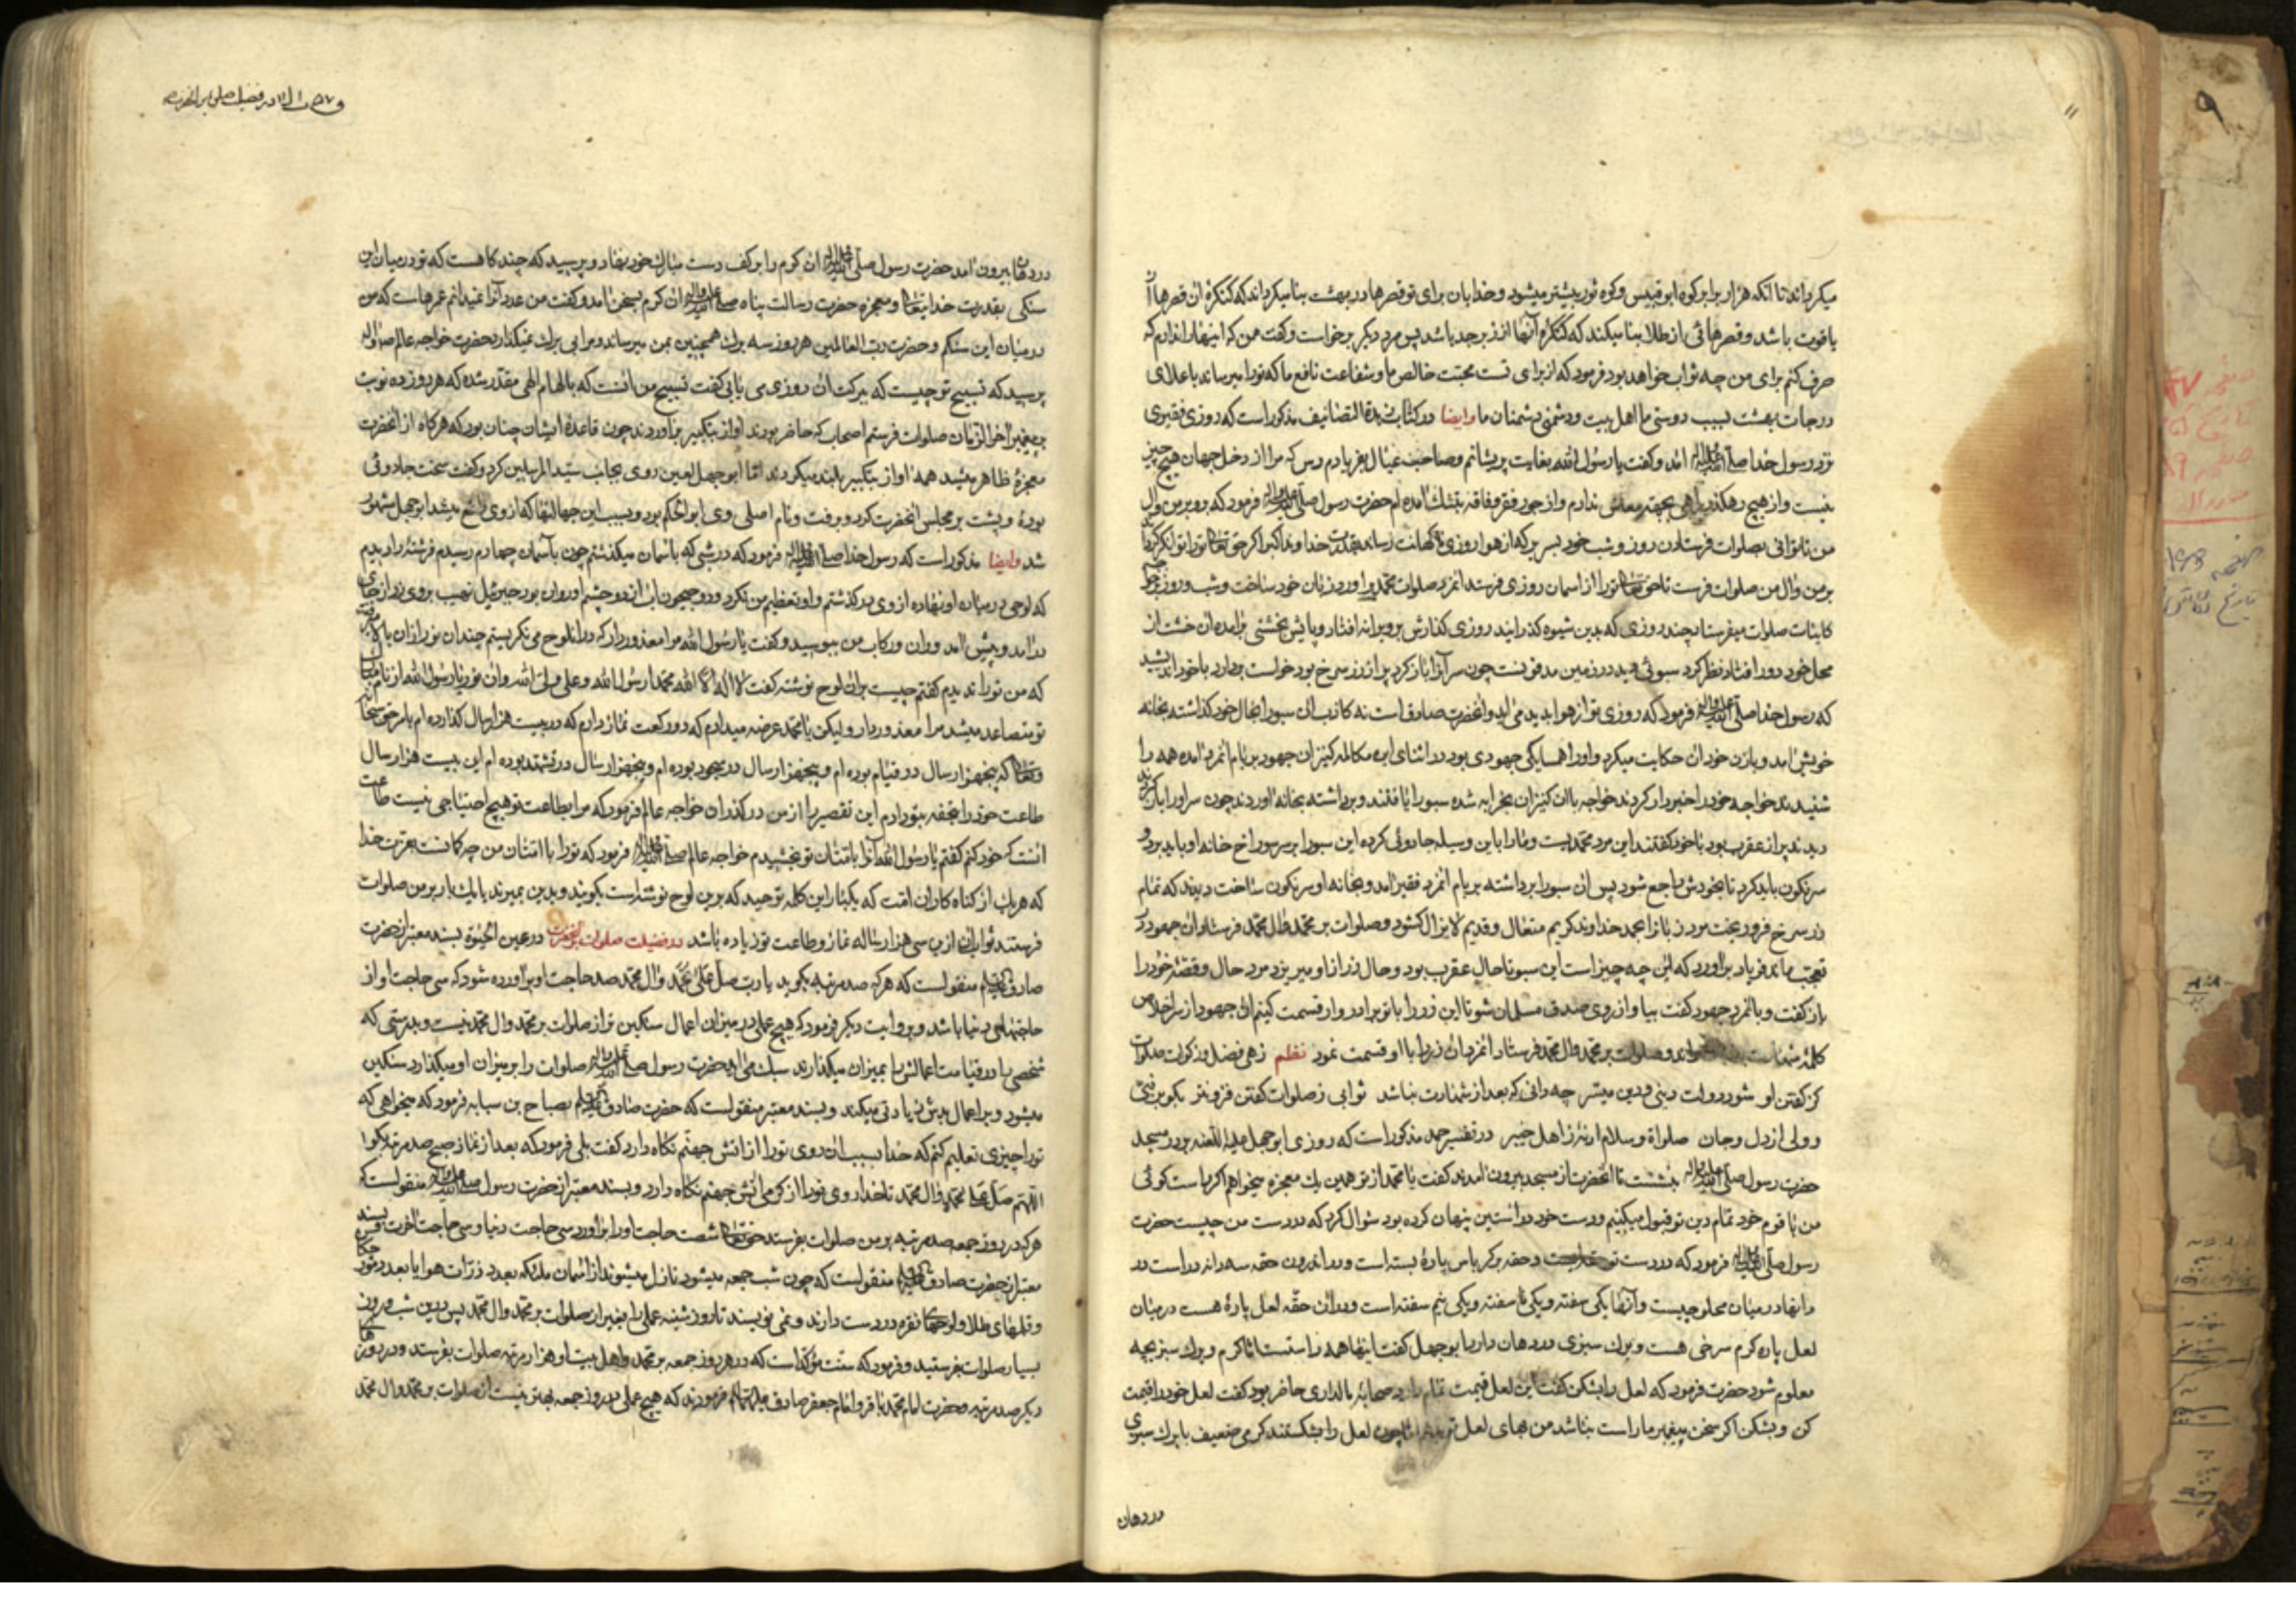 میکرداند تا انکه هزار برابر کوه ابوقبیس و کوه ثور بیشتر میشود و خدا بان برای تو قصرها در بهشت بنا میکرداند که کنکرۀ ان قصرها از
یاقوت باشد و قصرهائی از طلا بنا میکند که کنکرۀ آنها از زبرجد باشد پس مرد دیکر برخواست و کفت من که اینها را ندارم که
صرف کنم برای من چه ثواب خواهد بود فرمود که از برای تست محبت خالص ما و شفاعت نافع ما که تو را میرساند باعلای
درجات بهشت بسبب دوستی ما اهل بیت و دشمنی دشمنان ما وایضا در کتاب زبدة التصانیف مذکور است که روزی فقیری
نزد رسول خدا صلی الله علیه واله امد و کفت یا رسول الله بغایت پریشانم و صاحب عیال بفریادم رس که مرا از دخل جهان هیچ چیز
نیست و از هیچ رهکذر راهی بجهة معاش ندارم و از جور فقر و فاقه بتنك امده ام حضرت رسول صلی الله علیه واله فرمود که رو بر من وال
من تا توانی صلوات فرستادن روز و شب خود بسر بر که از هوا روزی ناکهانت رساند
بر من وال من صلوات فرست تا حق تعالی تو را از اسمان روزی فرستد انمرد صلوات محمد را ورد زبان خود ساخت و شب و روز بر
کاینات صلوات میفرستاد چند روزی که بدین شیوه کذرانید روزی کذارش بر ویرانه افتاد و پایش بخشتی برامده ان خشت از
محل خود دور افتاد نظر کرد سبوئی دید در زمین مدفونست چون سر آنرا باز کرد پر از زر سرخ بود خواست بردارد با خود اندیشید
که رسول خدا صلی الله علیه واله فرمود که روزی تو از هوا بدید می اید و انحضرت صادق است نه کاذب ان سبو را بحال خود کذاشته بخانه
خویش امد و با زن خود ان حکایت میکرد و او را همسایکی جهودی بود در اثنای این مکالمه کنیزان جهود بر بام انمرد امده همه را
شنیدند خواجه خود را خبردار کردند خواجه با ان کنیزان بخرابه شده سبو را یافتند و برداشته بخانه اوردند چون سر او را باز کردند
دیدند پر از عقرب بود با خود کفتند این مرد محمدیست و ما را باین وسیله جادوئی کرده این سبو را بر سر سوراخ خانه او باید برد و
سرنکون باید کرد تا بخودش راجع شود پس ان سبو را برداشته بر بام انمرد فقیر امد و بخانه او سرنکون ساخت دیدند که تمام
زر سرخ فرو ریخت مرد زبان بحمد خداوند کریم متعال و قدیم لایزال کشود و صلوات بر محمد وال محمد فرستاد ان جهود در
تعجب ماند فریاد براورد که این چه چیز است این سبو تا حال عقرب بود و حال زر از او میریزد مرد حال و قصۀ خود را
باز کفت و بانمرد جهود کفت بیا و از روی صدق مسلمان شو تا این زر را با تو برادروار قسمت کنیم ان جهود از سر اخلاص
کلمۀ شهادت بخواند و صلوات بر محمد وال محمد فرستاد انمرد ان زر را با او قسمت نمود نظم زهی فضل و زکوة صلوات
کز کفتن او شود دولت دینی و دین میسر چه دانی که بعد از شهادت نباشد ثوابی ز صلوات کفتن فزونتر بکو بر نبی
و ولی از دل و جان صلواة و سلام ار نۀ ز اهل خیبر در تفسیر حمد مذکور است که روزی ابوجهل علیه اللعنه بر در مسجد
حضرت رسول صلی الله علیه واله بنشست تا انحضرت از مسجد بیرون امدند کفت یا محمد از تو همین یك معجزه میخواهم اکر راست کوئی
من با قوم خود تمام دین تو قبول میکنیم و دست خود در استین پنهان کرده بود سؤال کرد که در دست من چیست حضرت
رسول صلی الله علیه واله فرمود که در دست تو حقه و کرباس پارۀ بسته است و در اندرون حقه سه دانه در است در
دانها در میان محلوجیست و آنها یکی سفته و یکی نا سفته و یکی نیم سفته است و در ان حقه لعل پارۀ هست در میان
لعل پاره کرم سرخی هست و برك سبزی در دهان دارد ابوجهل کفت اینها همه راستست اما کرم و برك سبز بچه
معلوم شود حضرت فرمود که لعل را بشکن کفت این لعل قیمت تمام دارد صحابۀ مالداری حاضر بود کفت لعل خود را قیمت
کن و بشکن اکر سخن پیغمبر ما راست نباشد من بهای لعل تو بدهم چون لعل را بشکستند کرمی ضعیف با برك سبزی
در دهان
۱۱
۹
در فضیلت صلوات بر انحضرت
در دهان بیرون امد حضرت رسول صلی الله علیه واله ان کرم را بر کف دست مبارك خود نهاد و پرسید که چند کاهست که تو در میان این
سنکی بقدرت خدایتعالی و معجزه حضرت رسالت پناه صلی الله علیه واله ان کرم بسخن امد و کفت من عدد آنرا نمیدانم عمرهاست که من
در میان این سنکم و حضرت رب العالمین هر روز سه برك همچنین بمن میرساند و مرا بی برك نمیکذارد حضرت خواجه عالم
پرسید که تسبیح تو چیست که ببرکت ان روزی می یابی کفت تسبیح من انست که بالهام الهی مقدر شده که هر روز ده نوبت
بر پیغمبر اخر الزمان صلوات فرستم اصحاب که حاضر بودند اواز بتکبیر براوردند چون قاعدۀ ایشان چنان بود که هرکاه از انحضرت
معجزۀ ظاهر میشد همه اواز بتکبیر بلند میکردند اما ابوجهل لعین روی بجانب سید المرسلین کرد و کفت سخت جادوئی
بودۀ و پشت بر مجلس انحضرت کرد و برفت و نام اصلی وی ابوالحکم بود و بسبب این جهالتها که از وی واقع میشد ابوجهل مشهور
شد وایضا مذکور است که رسول خدا صلی الله علیه واله فرمود که در شبی که باسمان میکذشتم چون بآسمان چهارم رسیدم فرشتۀ را دیدم
که لوحی در میان او نهاده از وی در کذشتم و او تعظیم من نکرد و دو جیحون اب از دو چشم او روان بود جبرئیل نهیب بر وی زد از جای
درآمد و پیش امد و ران و رکاب من ببوسید و کفت یا رسول الله مرا معذور دار که در ان لوح می نکریستم چندان نور ازان بالا
که من تو را ندیدم کفتم چیست بران لوح نوشته کفت لا اله الا الله محمد رسول الله و علی ولی الله وان نور یا رسول الله از نام
تو متصاعد میشد مرا معذور دار ولیکن یا محمد عرضه میدارم که دو رکعت نماز دارم که در بیست هزار سال کذارده ام بامر حق سبحانه
وتعالی که پنجهزار سال در قیام بوده ام و پنجهزار سال در سجود بوده ام و پنجهزار سال در تشهد بوده ام این بیست هزار سال
طاعت خود را بتحفه بتو دادم این تقصیر را از من در کذران خواجه عالم فرمود که مرا بطاعت تو هیچ احتیاجی نیست طاعت
انست که خود کنم کفتم یا رسول الله آنرا بامتثان تو بخشیدم خواجه عالم صلی الله علیه واله فرمود که تو را با امتنان من چه کار است بعزت خدا
که هر یك از کناه کاران امت که یکبار این کلمه توحید که برین لوح نوشته است بکویند و بدین بمیرند یا یك بار بر من صلوات
فرستند ثواب ان ازین سی هزار ساله نماز و طاعت تو زیاده باشد در فضیلت صلوات بر انحضرت در عین الحیوة بسند معتبر از حضرت
صادق علیه السلام منقولست که هر که صد مرتبه بکوید یا رب صل علی محمد وال محمد صد حاجت او براورده شود که سی حاجت او از
حاجتهای دنیا باشد و بروایت دیکر فرمود که هیچ عملی در میزان اعمال سنکین تر از صلوات بر محمد وال محمد نیست و بدرستی که
شخصی را در قیامت اعمالش را بمیزان میکذارند سبك می اید حضرت رسول صلی الله علیه واله صلوات را بر میزان او میکذارد سنکین
میشود و بر اعمال بدش زیادتی میکند و بسند معتبر منقولست که حضرت صادق علیه السلام بصباح بن سیابه فرمود که میخواهی که
تو را چیزی تعلیم کنم که خدا بسبب ان روی تو را از اتش جهنم نکاه دارد کفت بلی فرمود که بعد از نماز صبح صد مرتبه بکو
اللهم صل علی محمد وال محمد تا خدا روی تو را از کرمی اتش جهنم نکاه دارد و بسند معتبر از حضرت رسول صلی الله علیه واله منقولست که
هر که در روز جمعه صد مرتبه بر من صلوات بفرستد حق تعالی شصت حاجت او را براورد سی حاجت دنیا و سی حاجت اخرت و بسند
معتبر از حضرت صادق علیه السلام منقولست که چون شب جمعه میشود نازل میشوند از اسمان ملئکه بعدد ذرات هوا یا بعدد مور
و قلمهای طلا و لوحهای نقره در دست دارند و نمی نویسند تا روز شنبه عملی را بغیر از صلوات بر محمد وال محمد پس درین شب و روز
بسیار صلوات بفرستید و فرمود که سنت مؤکد است که در هر روز جمعه بر محمد واهل بیت او هزار مرتبه صلوات بفرستد و در روز
دیکر صد مرتبه و حضرت امام محمد باقر و امام جعفر صادق علیهما السلام فرمودند که هیچ عملی در روز جمعه بهتر نیست از صلوات بر محمد وال محمد